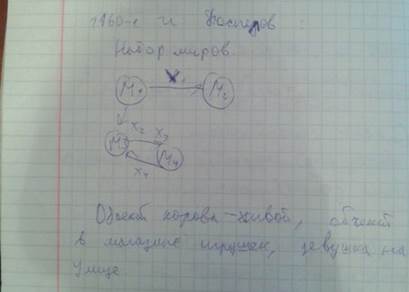 1960-е и Каспаров:
Набор миров
M1 X1 M2
X2 X3
M3 M4
X4
Объект корова - живой, объект
в магазине игрушек, девушка на
улице